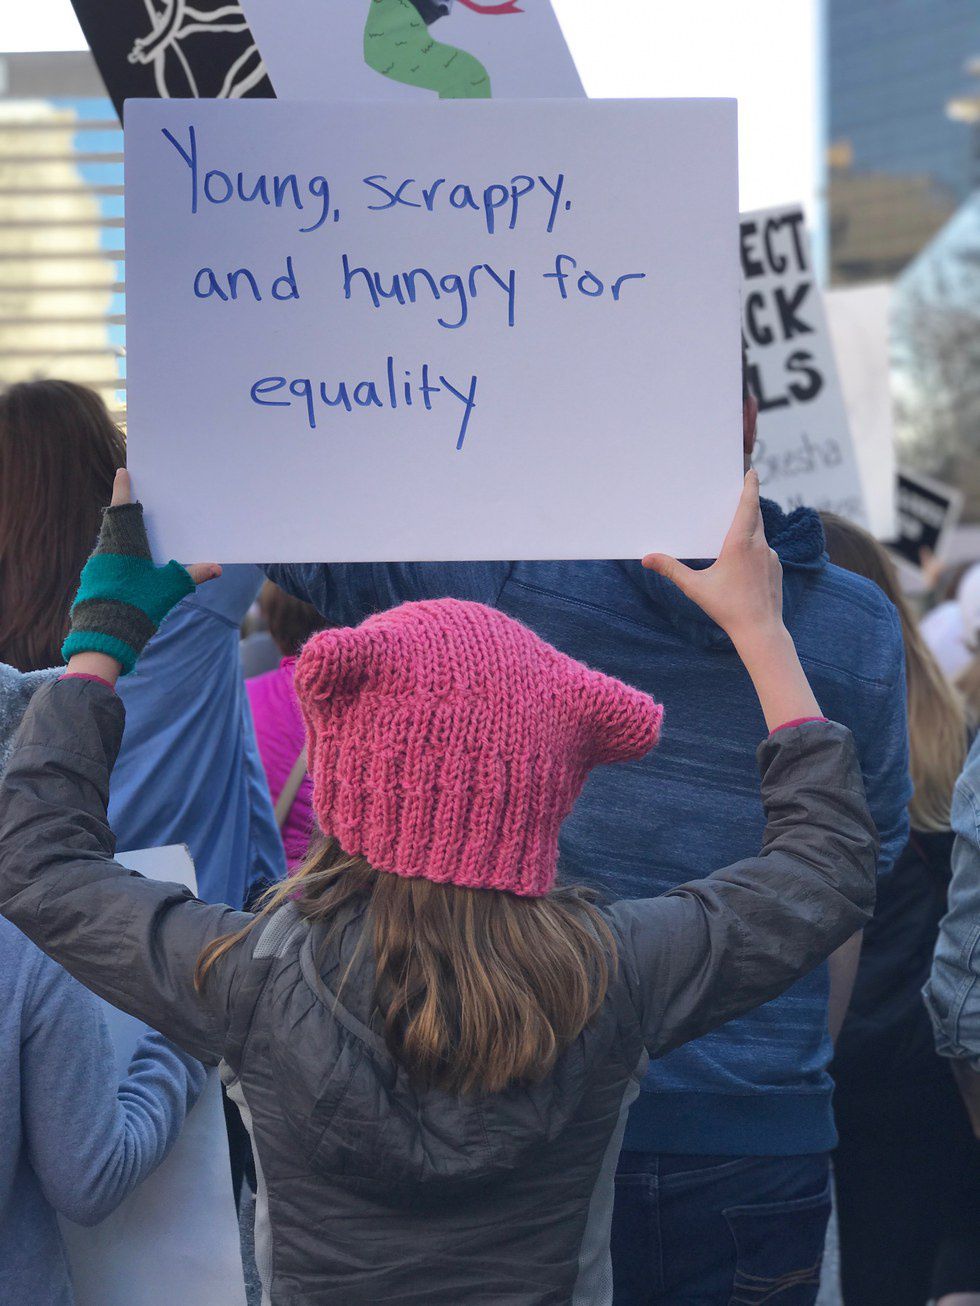 Young, scrappy.
and hungry for
equality
ECT
CK
LS
Bresha